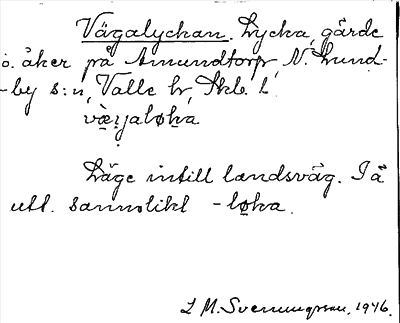 Vägalyckan. Lycka, gärde
o. åker på Amundtorp, N. Lund-
-by s:n, Valle hr, Skb. l.
væɡaløka
Läge intill landsväg. I ä
utt. sannolikt -løka.
L M. Svenungsson, 1946.